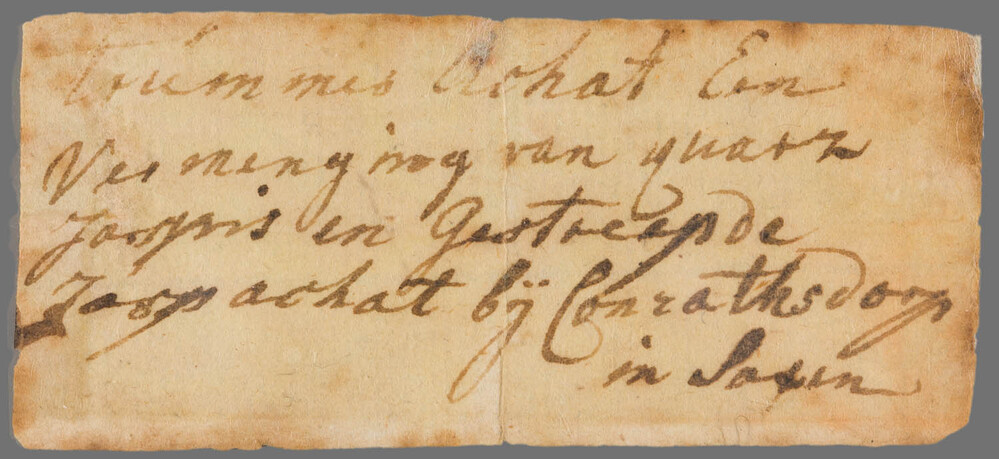 Trümmer Achat Een
Vermenging van quarz
Jaspis en Gestreepde
Jaspachat bÿ Conrathsdorp
in Saxen